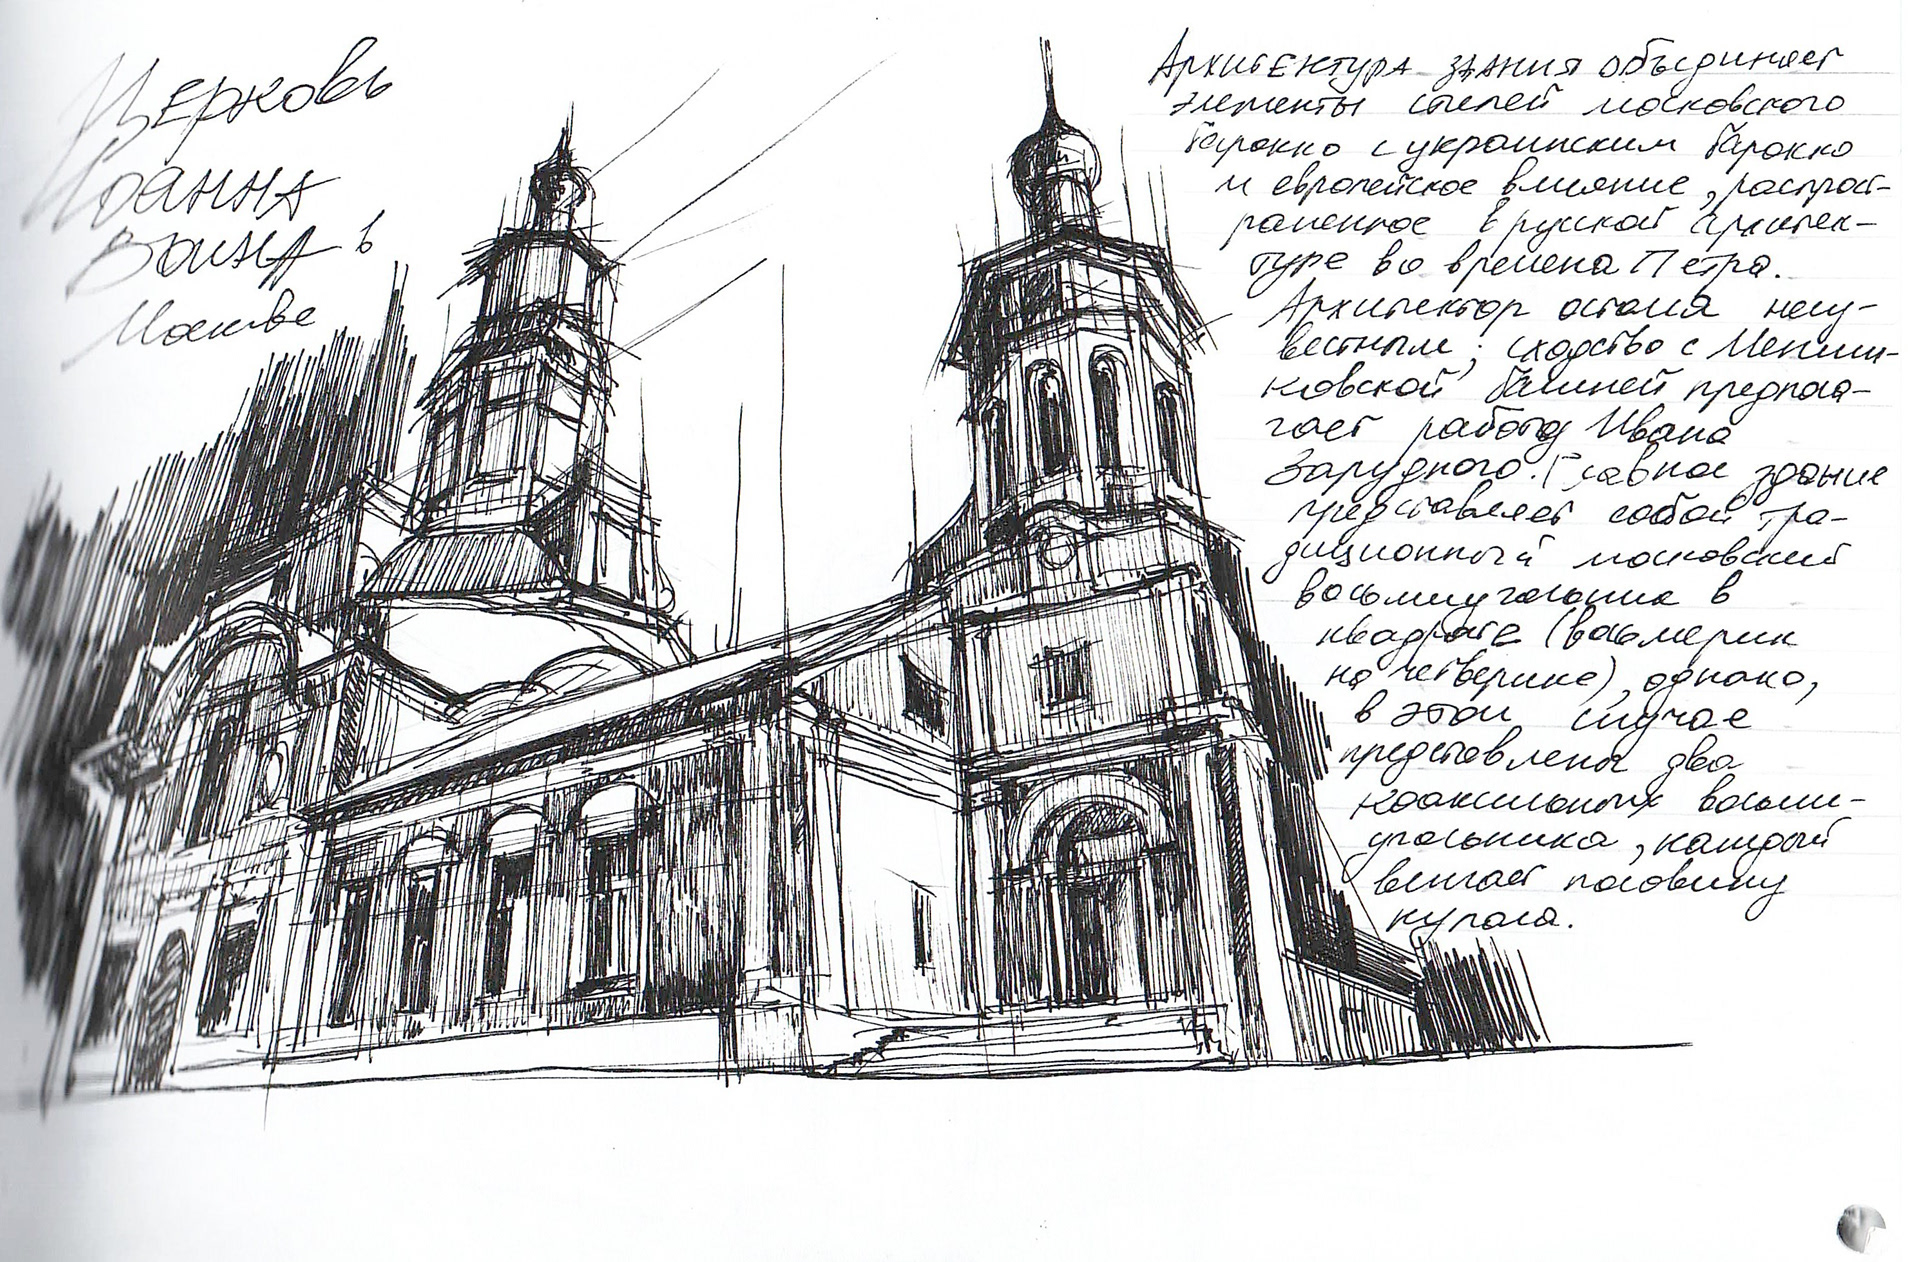 Церковь
Иоанна
Воина в
Москве
Архитектура здания объединяет
элементы стилей московского
барокко с украинским барокко
и европейское влияние, распрост-
раненное в русской архитек-
туре во времена Петра.
Архитектор остался неиз-
вестным; сходство с Менши-
ковской башней предпола-
гает работу Ивана
Зарудного. Главное здание
представляет собой тра-
диционный московский
восьмиугольник в
квадрате (восьмерик
на четверике), однако,
в этом случае
представлены два
коаксильных восьми-
угольника, каждый
венчает половину
купола.